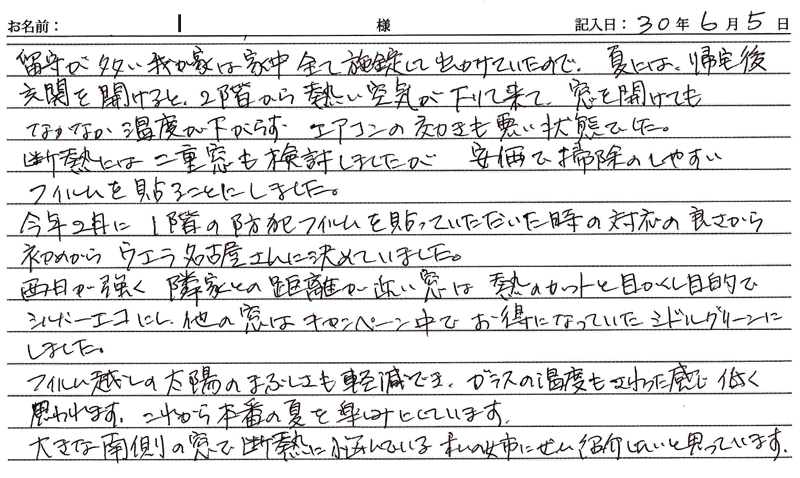 お名前： 様 記入日：30年6月5日
留守が多い我が家は家中全て施錠して出かけていたので、夏には、帰宅後
玄関を開けると、2階から熱い空気が下りて来て、窓を開けても
なかなか温度が下がらず エアコンの効きも悪い状態でした。
断熱には二重窓も検討しましたが 安価で掃除のしやすい
フィルムを貼ることにしました。
今年2月に 1階の防犯フィルムを貼っていただいた時の対応の良さから
初めから ウエラ名古屋さんに決めていました。
西日が強く 隣家との距離が近い窓は 熱のカットと目かくし目的で
シルバーエコにし、他の窓はキャンペーン中でお得になっていたミドルグリーンに
しました。
フィルム越しの太陽のまぶしさも軽減でき、ガラスの温度もさわった感じ低く
思われます。これから本番の夏を楽しみにしています。
大きな南側の窓で断熱に悩んでいる私の姉にぜひ紹介したいと思っています。